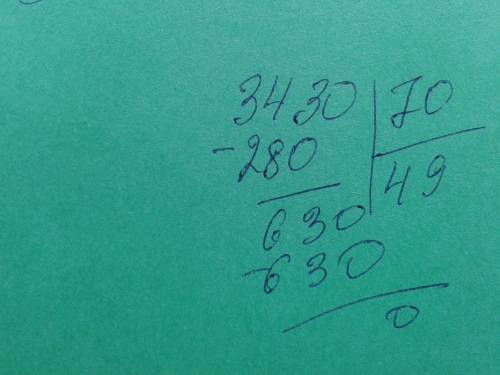 3430 70
-280 49
630
-630
0